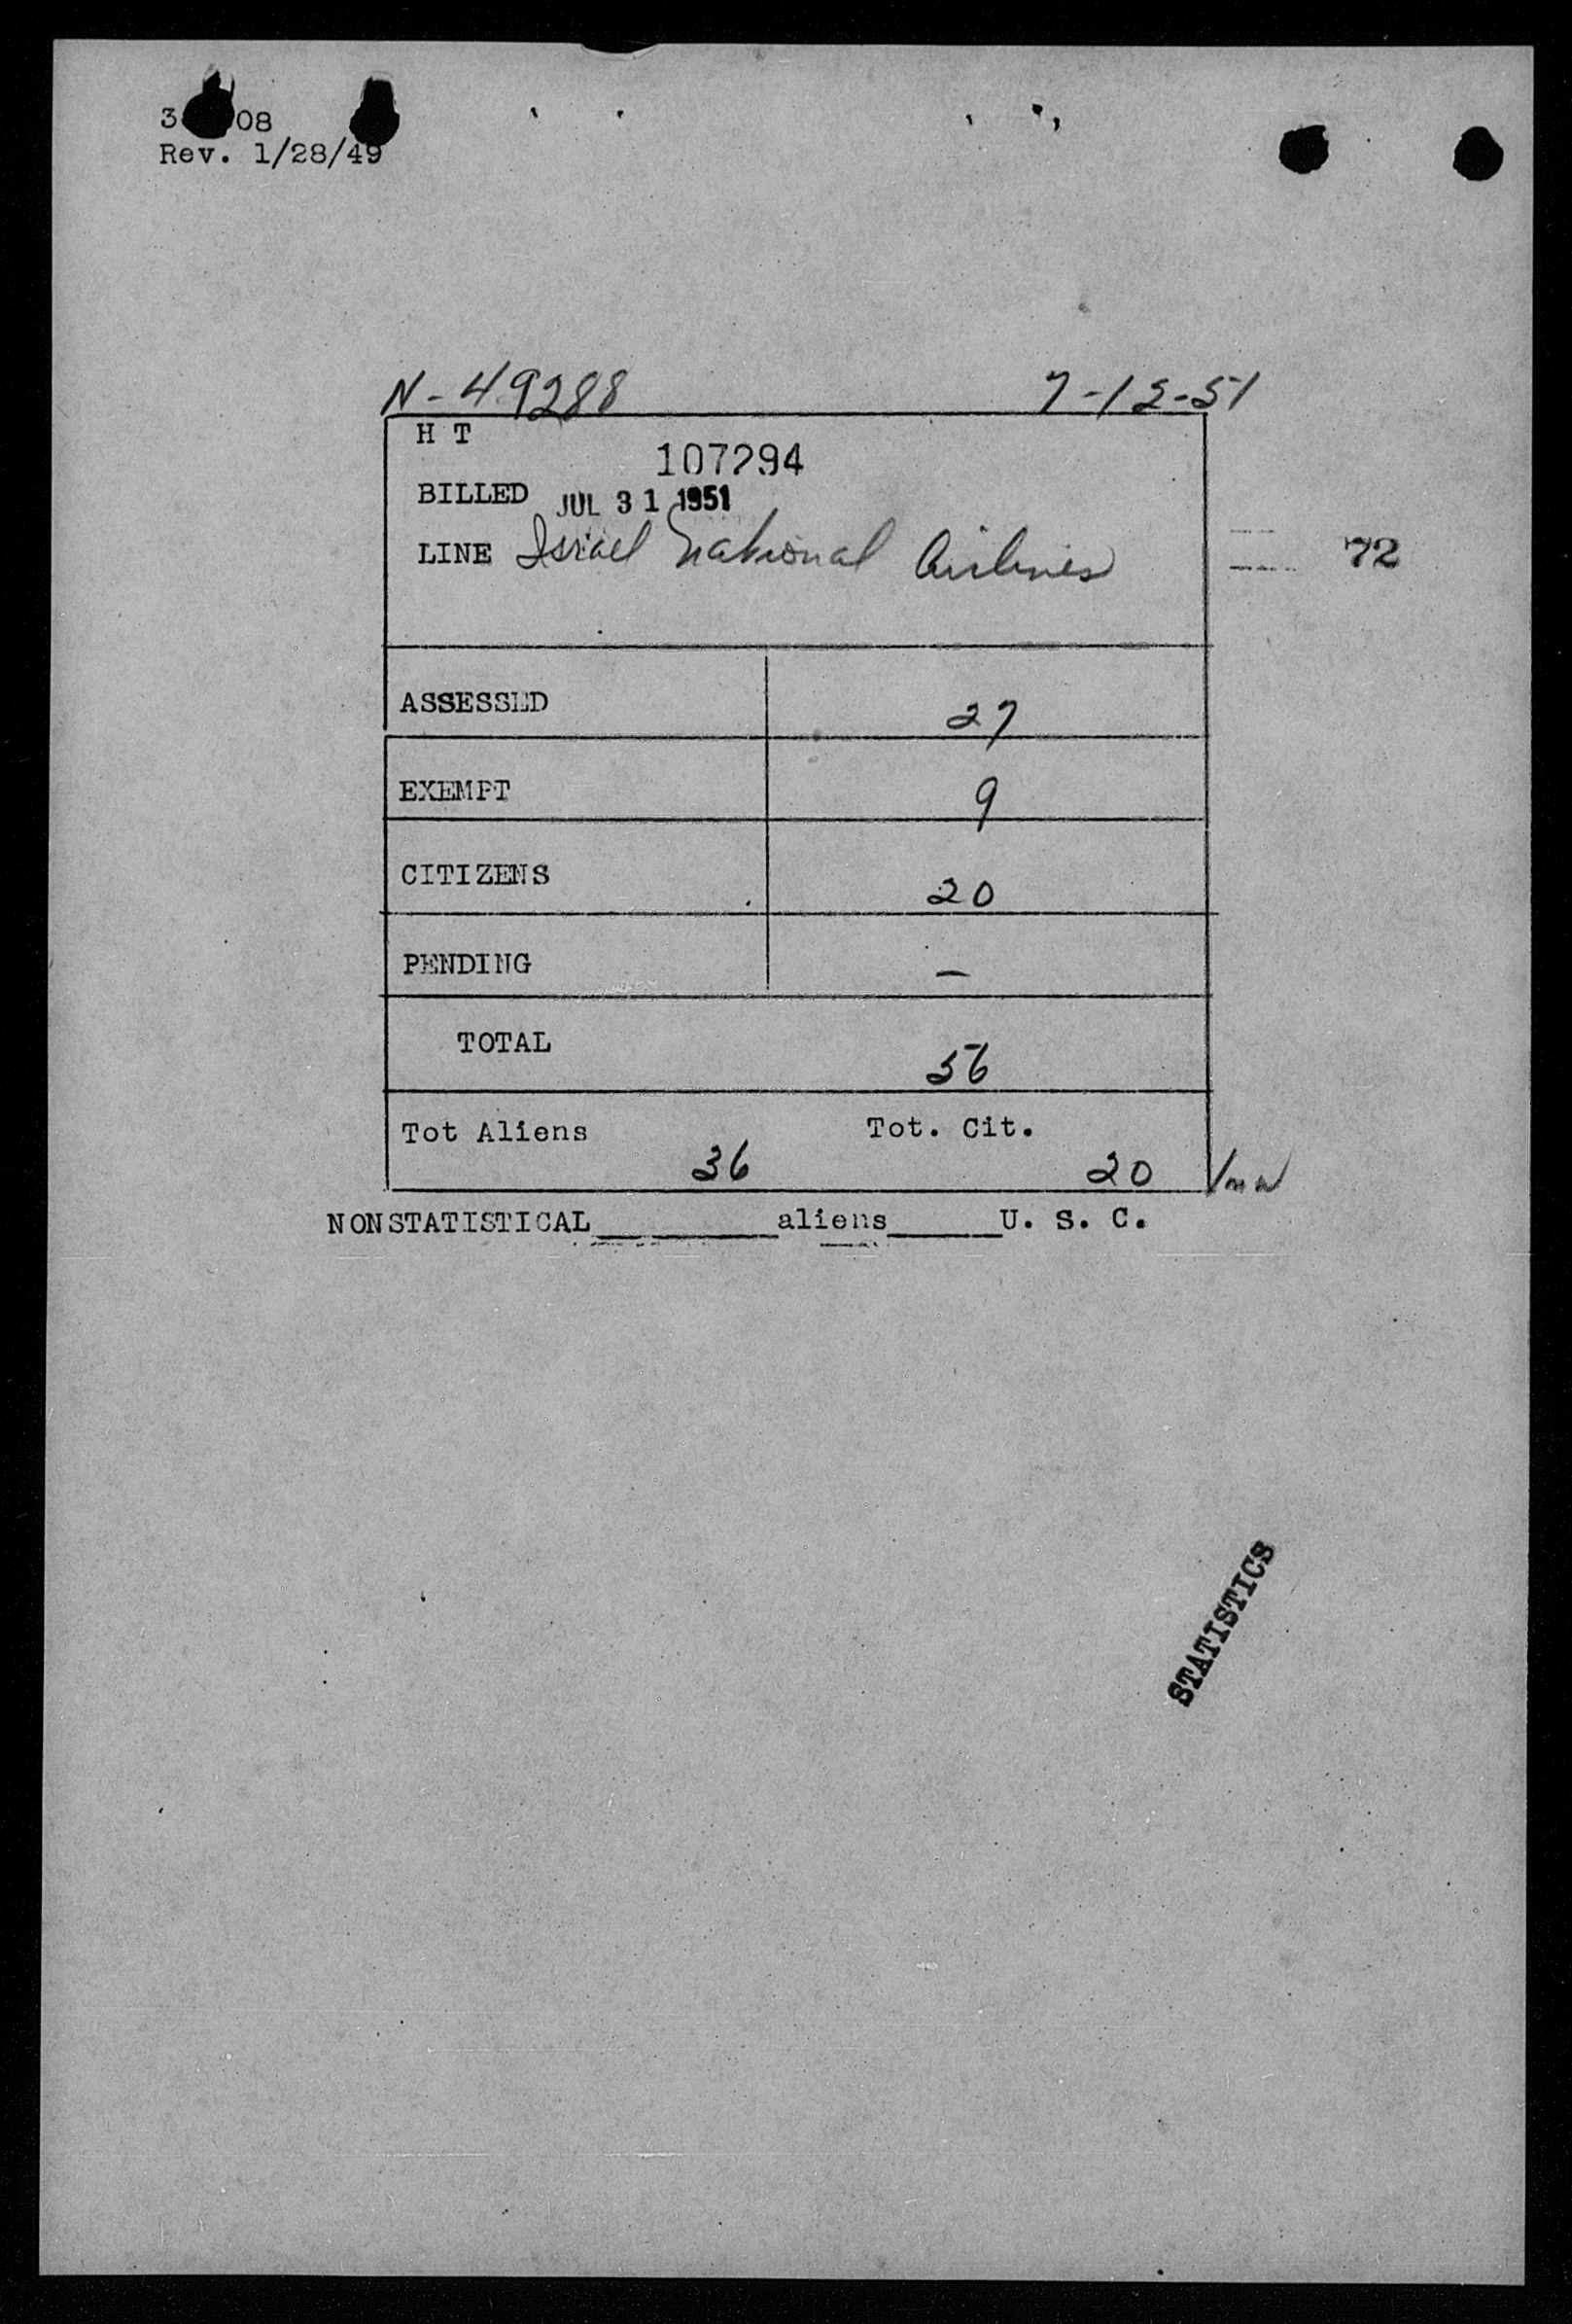 08
Rev. 1/28/49
N-49288 7-12-51
H T
107294
BILLED JUL 31 1951
LINE Israel National Airlines 72
ASSESSED 27
EXEMPT 9
CITIZENS 20
PENDING —
TOTAL 56
Tot Aliens 36 Tot. Cit. 20
NONSTATISTICAL________aliens_____U. S. C.
STATISTICS